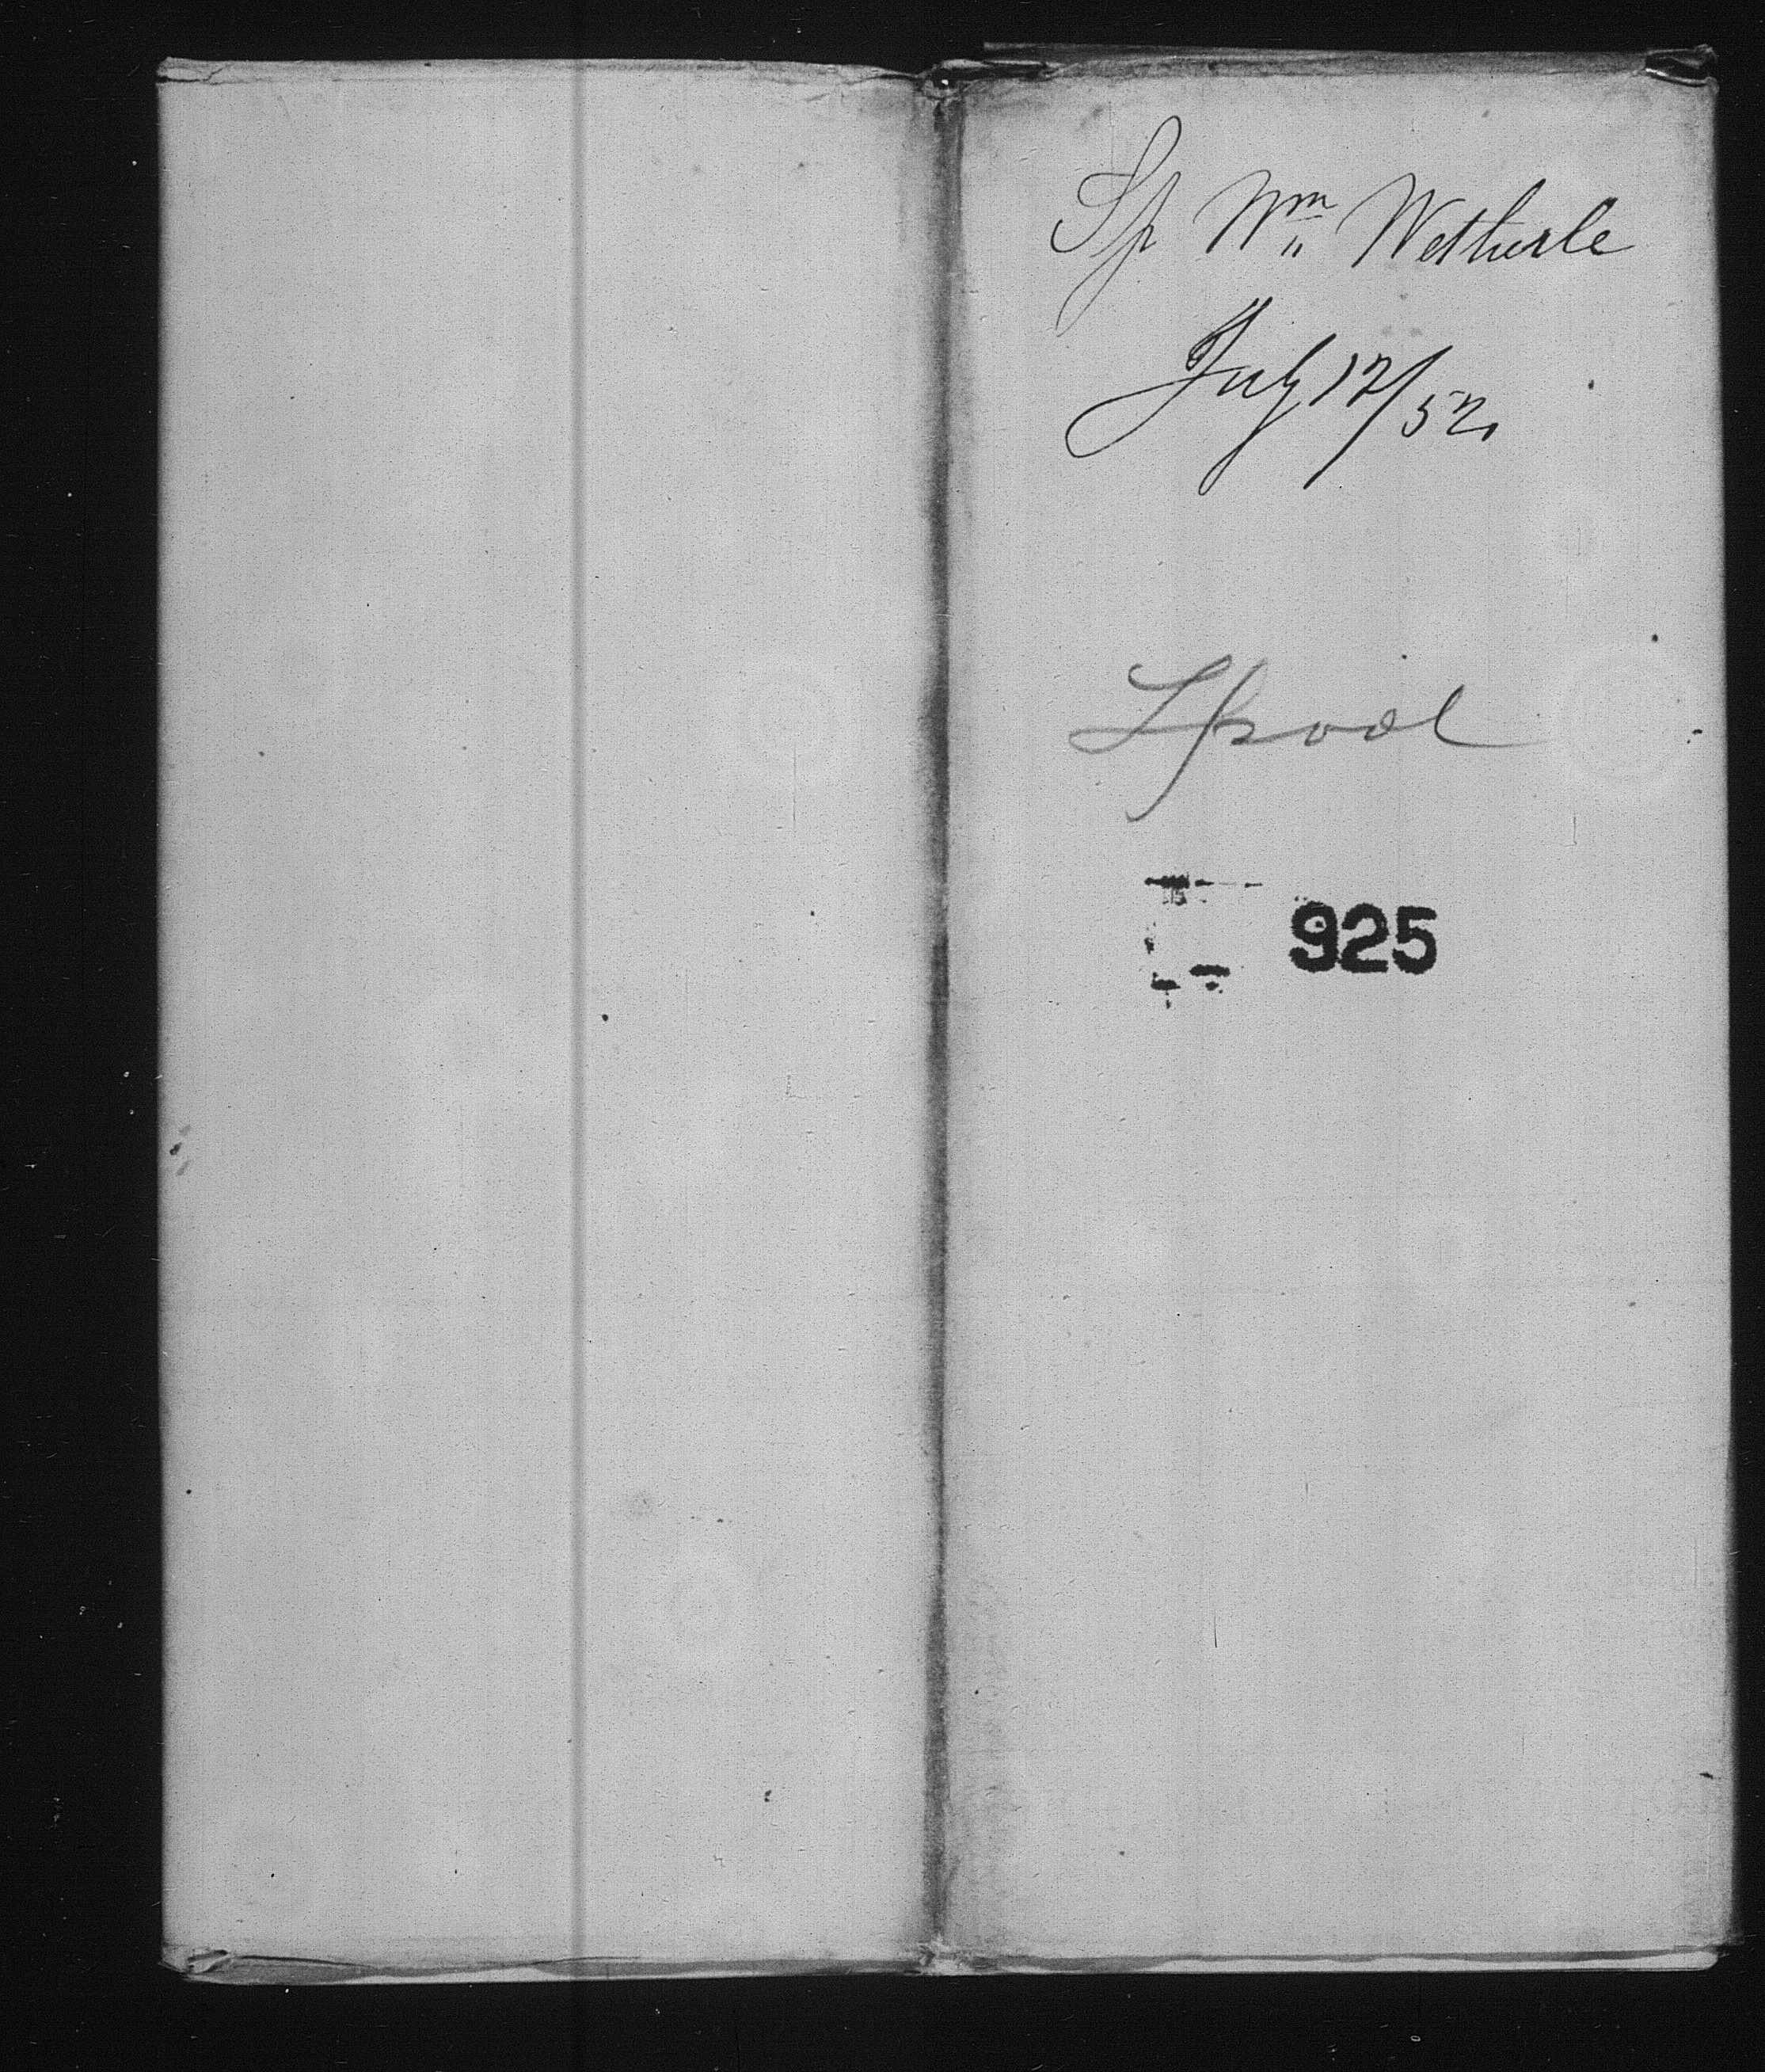 Sp Wm Wetherle
July 12/52.
Lpool
925